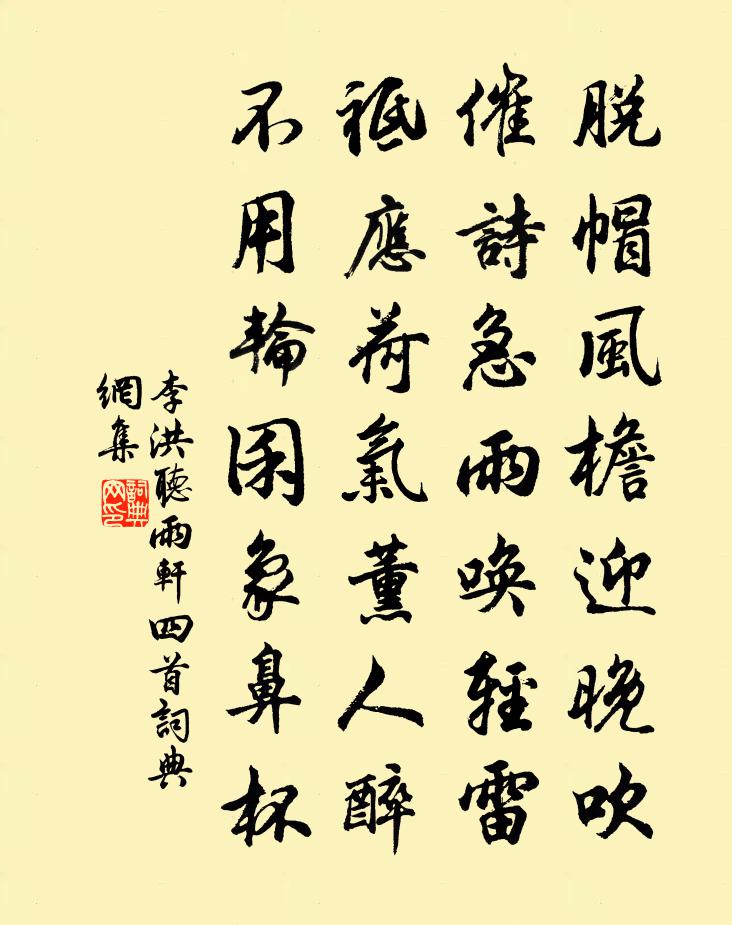 脫帽風檐迎晚吹
催詩急雨喚輕雷
祗應荷氣薰人醉
不用輪囷象鼻杯
李洪聽雨軒四首詞典
網集
詞典
网印